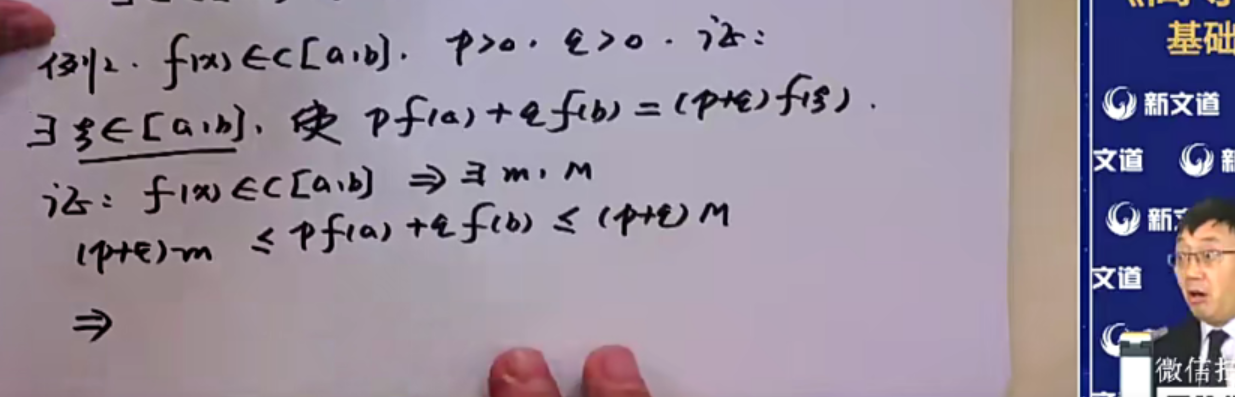 例2. f(x)∈C[a,b]. p>0. q>0. 证:
∃ ξ∈[a,b], 使 pf(a)+qf(b)=(p+q)f(ξ).
证: f(x)∈C[a,b] ⇒ ∃ m, M
(p+q)m ≤ pf(a)+qf(b) ≤ (p+q)M
⇒
基础
新文道
文道
新
新
文道
微信扫